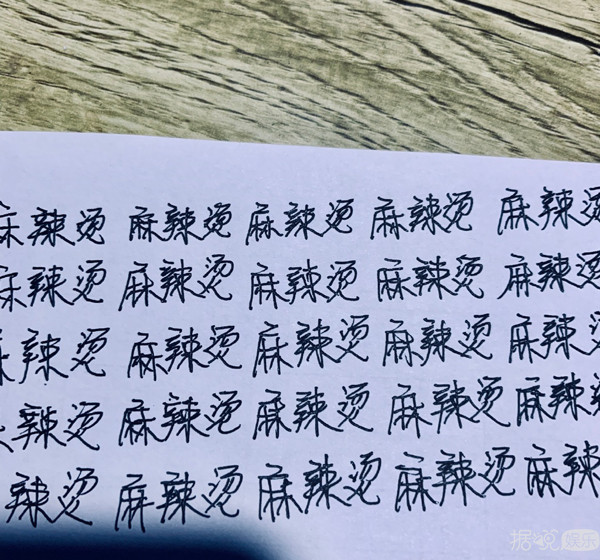 麻辣烫 麻辣烫 麻辣烫 麻辣烫 麻辣烫
麻辣烫 麻辣烫 麻辣烫 麻辣烫 麻辣烫
麻辣烫 麻辣烫 麻辣烫 麻辣烫 麻辣烫
辣烫 麻辣烫 麻辣烫 麻辣烫 麻辣烫
辣烫 麻辣烫 麻辣烫 麻辣烫 麻辣
据说娱乐